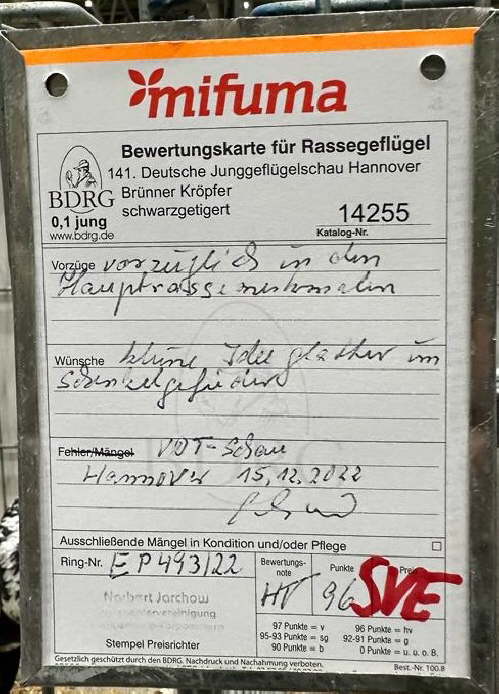 mifuma
Bewertungskarte für Rassegeflügel
141. Deutsche Junggeflügelschau Hannover
BDRG
Brünner Kröpfer
0,1 jung
schwarzgetigert
14255
www.bdrg.de
Katalog-Nr.
Vorzüge vorzüglich in den
Hauptrassemerkmalen
Wünsche kleine Idee glatter im
Schenkelgefieder
Fehler/Mängel VDT-Schau
Hannover 15.12.2022
Ausschließende Mängel in Kondition und/oder Pflege
Ring-Nr. EP493/22
Bewertungs-
note
Punkte
Preis
HV
96
SVE
Norbert Jarchow
Stempel Preisrichter
97 Punkte = v
96 Punkte = hv
95-93 Punkte = sg
92-91 Punkte = g
90 Punkte = b
0 Punkte = u. o. B.
Gesetzlich geschützt durch den BDRG. Nachdruck und Nachahmung verboten.
Best.-Nr. 100.8